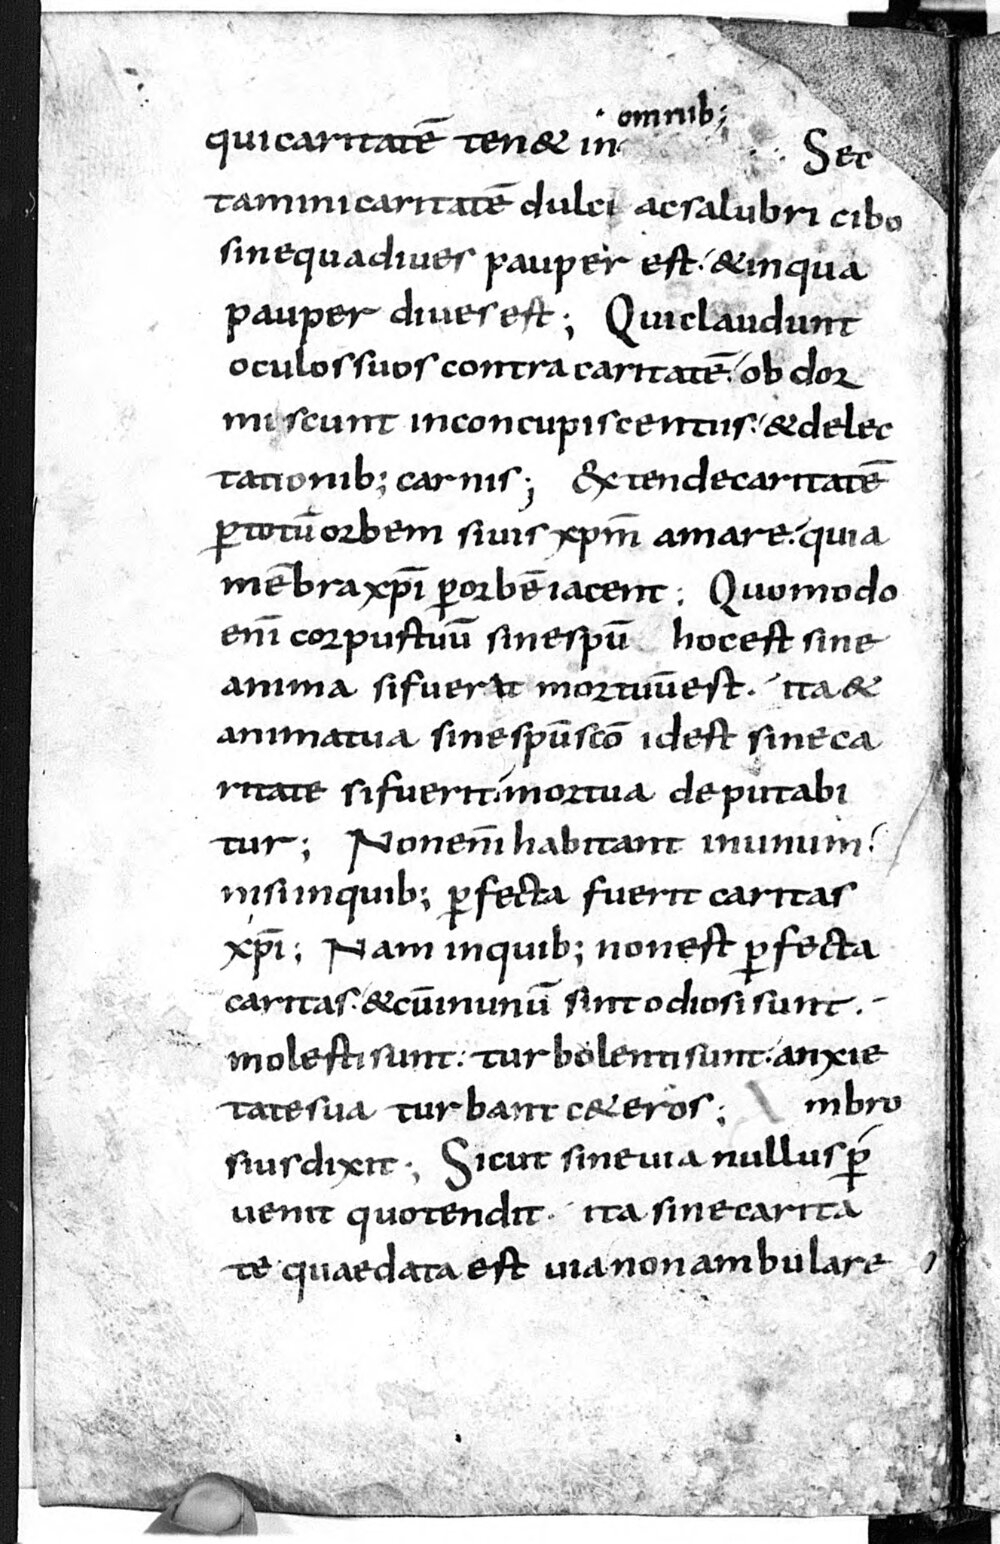 omnib;
qui caritatē ten& in Sec
tamini caritatē dulci ac salubri cibo
sine qua dives pauper est. & in qua
pauper dives est; Qui claudunt
oculos suos contra caritatē. obdor
miscunt in concupiscentiis. & delec
tationib; carnis; Extende caritatē
ꝑ totū orbem si vis xp̄m amare. quia
mēbra xp̄i ꝑ orbē iacent; Quomodo
enī corpus tuū sine spū hoc est sine
anima si fuerit mortuū est. ita &
anima tua sine spū scō id est sine ca
ritate si fuerit mortua deputabi
tur; Non enī habitant in unum.
nisi in quib; ꝑfecta fuerit caritas
xp̄i; Nam in quib; non est ꝑfecta
caritas. & cū in unū sint odiosi sunt.
molesti sunt. turbolenti sunt. anxie
tate sua turbant c&eros; mbro
sius dixit; Sicut sine via nullus ꝑ
venit quo tendit. ita sine carita
te quae data est via non ambulare